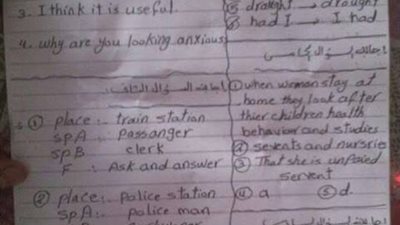 3. I think it is useful.
4. why are you looking anxious
إجابة السؤال الثالث
① place:- train station
sp.A: Passanger
sp.B clerk
F: Ask and answer
② place:- Police station
sp.A:- Police man
⑤ drought → drought
⑥ had I → I had
إجابة السؤال الخامس
① when woman stay at
home they look after
thier children health
behavior and studies
② sevents and nursrie
③ That she is unpaied
servent
④ a ⑤ d.